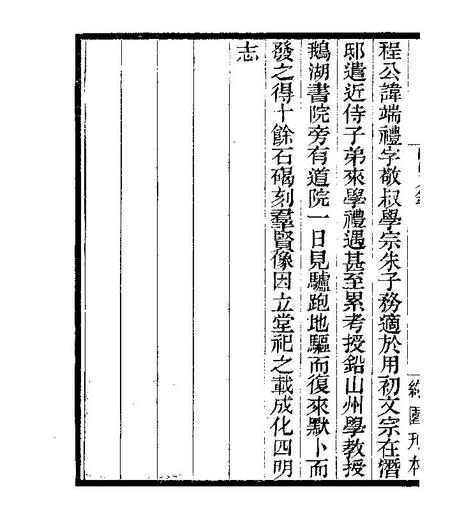 程公諱端禮字敬叔學宗朱子務適於用初文宗在潛
邸遣近侍子弟來學禮遇甚至累考授鉛山州學教授
鵝湖書院旁有道院一日見驢跑地驅而復來默卜而
發之得十餘石碣刻羣賢像因立堂祀之載成化四明
志